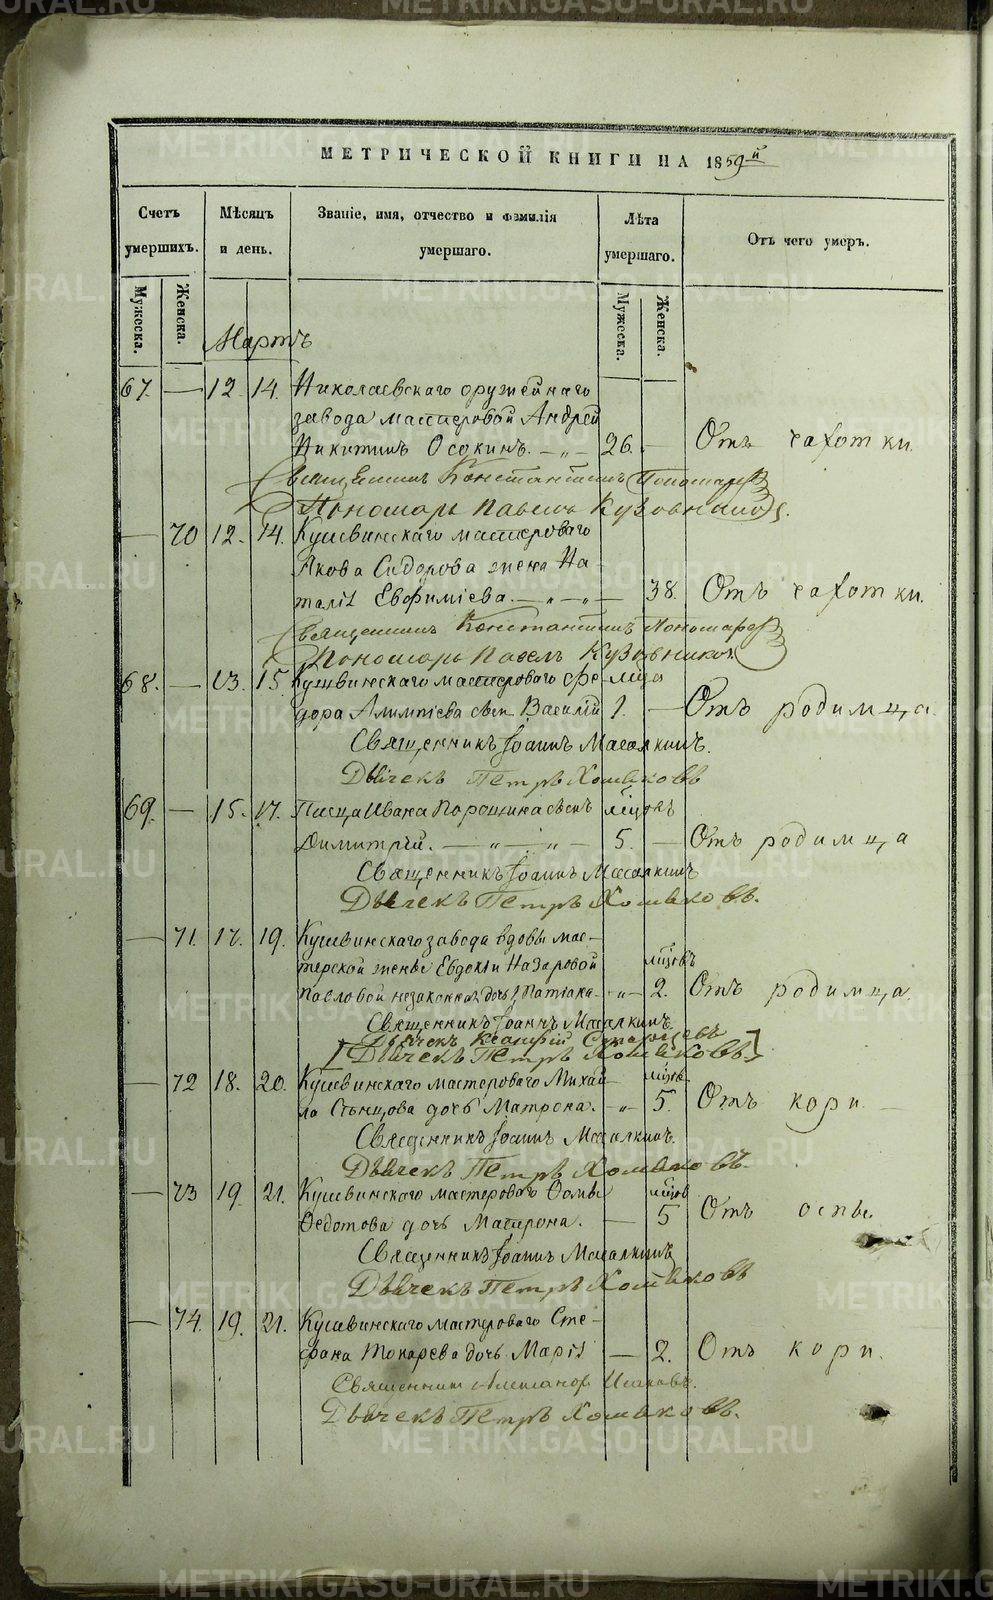 МЕТРИЧЕСКОЙ КНИГИ НА 1859й
Счетъ умершихъ. Мѣсяцъ и день. Званіе, имя, отчество и фамилія умершаго. Лѣта умершаго. Отъ чего умеръ.
Мужеска. Женска. Мужеска. Женска.
Мартъ
67. — 12. 14. Николаевскаго оружейнаго
завода мастеровой Андрей
Никитинъ Осокинъ. — „ — 26. — Отъ чахотки.
Священникъ Константинъ Пономаревъ
Пономарь Павелъ Кузовниковъ.
— 70 12. 14. Кушвинскаго мастероваго
Якова Сидорова жена На-
талія Евфиміева. — „ — „ — 38. Отъ чахотки.
Священникъ Константинъ Пономаревъ
Пономарь Павелъ Кузовниковъ
68. — 13. 15. Кушвинскаго мастероваго Ѳе-
дора Алимпіева сынъ Василій 1. — Отъ родимца.
Священникъ Іоаннъ Масалкинъ.
Дьячекъ Петръ Хомяковъ
69. — 15. 17. Писца Ивана Порошина сынъ мѣсцовъ
Димитрій. — „ — „ — 5. — Отъ родимца
Священникъ Іоаннъ Масалкинъ
Дьячекъ Петръ Хомяковъ.
— 71. 17. 19. Кушвинскаго завода вдовы мас-
терской жены Евдокіи Назаровой мѣсцовъ
Павловой незаконная дочь — „ — 2. Отъ родимца.
Священникъ Іоаннъ Масалкинъ.
Дьячекъ
[Дьячекъ Петръ Хомяковъ]
— 72 18. 20. Кушвинскаго мастероваго Михай-
ла дочь Матрона. — „ — 5. Отъ кори. —
Священникъ Іоаннъ Масалкинъ.
Дьячекъ Петръ Хомяковъ.
— 73 19. 21. Кушвинскаго мастероваго Ѳомы мѣсцов
Ѳедотова дочь Матрона. — 5 Отъ оспы
Священникъ Іоаннъ Масалкинъ
Дьячекъ Петръ Хомяковъ
— 74. 19. 21. Кушвинскаго мастероваго Сте-
фана Токарева дочь Марія — 2. Отъ кори.
Священникъ Александръ
Дьячекъ Петръ Хомяковъ.
METRIKI.GASO-URAL.RU